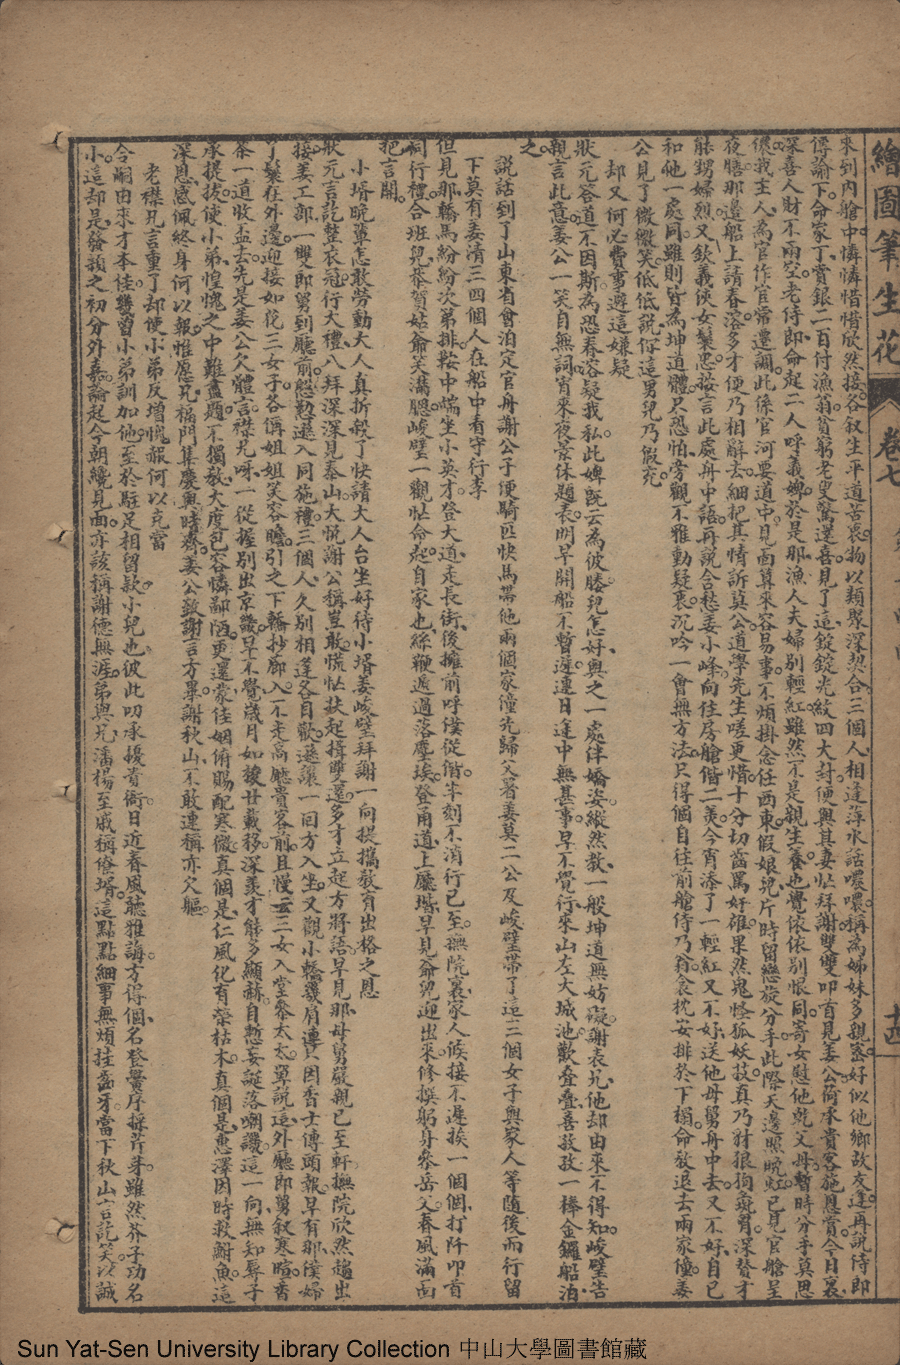 繪圖筆生花 卷七
來到內艙中憐憐惜惜欣然接各叙生平道苦衷物以類聚深契合三個人相逢萍水話噥噥稱為姊妹多親蜜好似他鄉故友逢再說侍郎
傳諭下命家丁賞銀二百付漁翁貧窮老叟驚還喜見了這錠錠光紋四大封便與其妻忙拜謝雙雙叩首見姜公荷承貴客施恩賞今日裏
深喜人財不兩空老侍郎命起二人呼義婢於是那漁人夫婦別輕紅雖然不是親生養也覺依依別恨同寄女慰他乾父母暫時分手莫思
儂我主人為官作宦常遷調此係官河要道中見面算來容易事不煩掛念任西東假娘兒片時留戀旋分手此際天邊照晚虹已見官艙呈
夜膳那邊船上請春容多才便乃相辭去細把其情訴莫公道學先生嗟更惜十分切齒罵奸雄果然鬼怪狐妖技真乃豺狼狗彘胷深贊才
能甥婦烈又欽義俠女鬟忠裕言此處舟中語再說含愁姜小峰向住房艙偕二美今宵添了一輕紅又不好送他母舅舟中去又不好自已
和他一處同雖則皆為坤道體只恐怕旁觀不雅動疑衷沉吟一會無方法只得個自往前艙侍乃翁衾枕安排於下榻命教退去兩家僮姜
公見了微微笑低低說你這男兒乃假充
却又何必費事避這嫌疑
狀元答道不因斯為恐春容疑我私此婢既云為彼媵兒怎好與之一處伴嬌姿縱然教一般坤道無妨礙謝表兄他却由來不得知峻璧告
親言此意姜公一笑自無詞宵來夜景休題表明早開船不暫遲連日途中無甚事早不覺行來山左大城池歡叠叠喜孜孜一棒金鑼船泊
之
說話到了山東省會泊定官舟謝公子便騎匹快馬帶他兩個家僮先歸父署姜莫二公及峻璧帶了這三個女子與家人等隨後而行留
下莫有姜清三四個人在船中看守行李
但見那轎馬紛紛次第排鞍中端坐小英才登大道走長街後擁前呼僕從偕半刻不消行已至撫院裏家人候接不遲挨一個個打阡叩首
同行禮合班兒恭賀姑爺笑滿腮峻璧一觀忙命起自家也絲鞭遞過落塵埃登甬道上廳堦早見爺兒迎出來修撰躬身參岳父春風滿面
把言開
小壻晚輩怎敢勞動大人真折殺了快請大人台坐好待小壻姜峻璧拜謝一向提攜教育出格之恩
狀元言訖整衣冠行大禮八拜深深見泰山大悅謝公稱豈敢慌忙扶起揖雙還多才立起方將語早見那母舅嚴親已至軒撫院欣然趨出
接姜工部一雙郎舅到廳前慇懃遜入同施禮三個人久別相逢各自歡遜讓一回方入坐又觀小轎幾肩連只因香士傳頭報早有那僕婦
了鬟在外邊迎接如花三女子各偁姐姐笑容瞻引之下轎抄廊入不走高廳貴客前且慢云三女入堂參太太單說這外廳郎舅叙寒暄香
茶一道收盃去先是姜公欠體言襟兄呀一從握別出京畿早不覺歲月如梭廿載移深羨才能多顯赫自慙妄誕落嘲譏這一向無知辱子
承提拔使小弟惶愧之中難盡題不獨教大度包容憐鄙陋更還蒙佳姻俯賜配寒微真個是仁風化有榮枯木真個是惠澤因時救鮒魚這
深恩感佩終身何以報惟願兄福門集慶與時齊姜公致謝言方畢謝秋山不敢連稱亦欠軀
老襟兄言重了却使小弟反增愧赧何以克當
令嗣由來才本佳幾曾小弟訓加他至於駐足相留款小兒也彼此叨承擾貴衙日近春風聽雅誨方得個名登黌序採芹芽雖然芥子功名
小這却是發韻之初分外嘉論起今朝纔見面亦該稱謝德無涯弟與兄潘楊至戚稱僚壻這點點細事無煩挂齒牙當下秋山言訖笑以誠
Sun Yat-Sen University Library Collection 中山大學圖書館藏